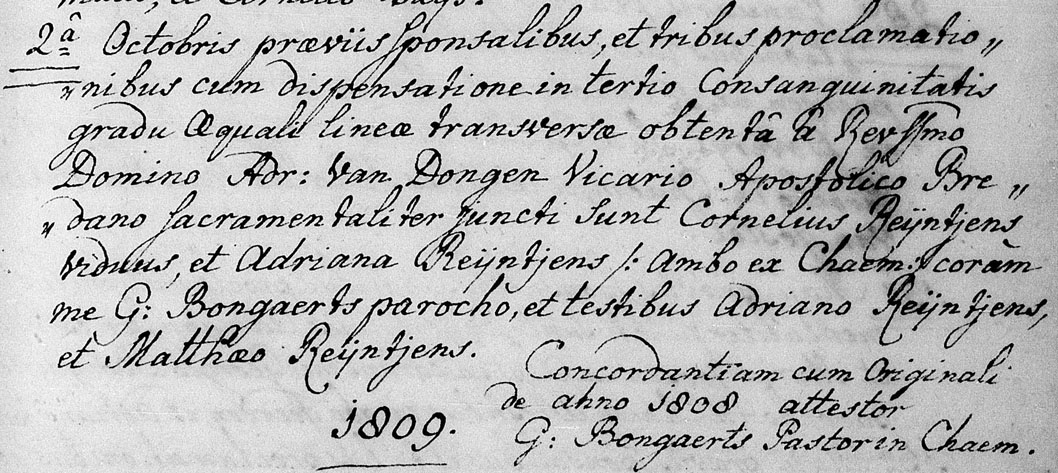 et Cornelio
2â Octobris præviis sponsalibus, et tribus proclamatio„
„nibus cum dispensatione in tertio Consanguinitatis
gradu Æquali lineæ transversæ obtentâ â Revssmo
Domino Adr: Van Dongen Vicario Apostolico Bre„
„dano sacramentaliter juncti sunt Cornelius Reijntjens
viduus, et Adriana Reijntjens /: ambo ex Chaem:/ coràm
me G: Bongaerts parocho, et testibus Adriano Reijntjens,
et Matthæo Reijntjens.
Concordantiam cum Originali
de anno 1808 attestor
G: Bongaerts Pastor in Chaem.
1809.